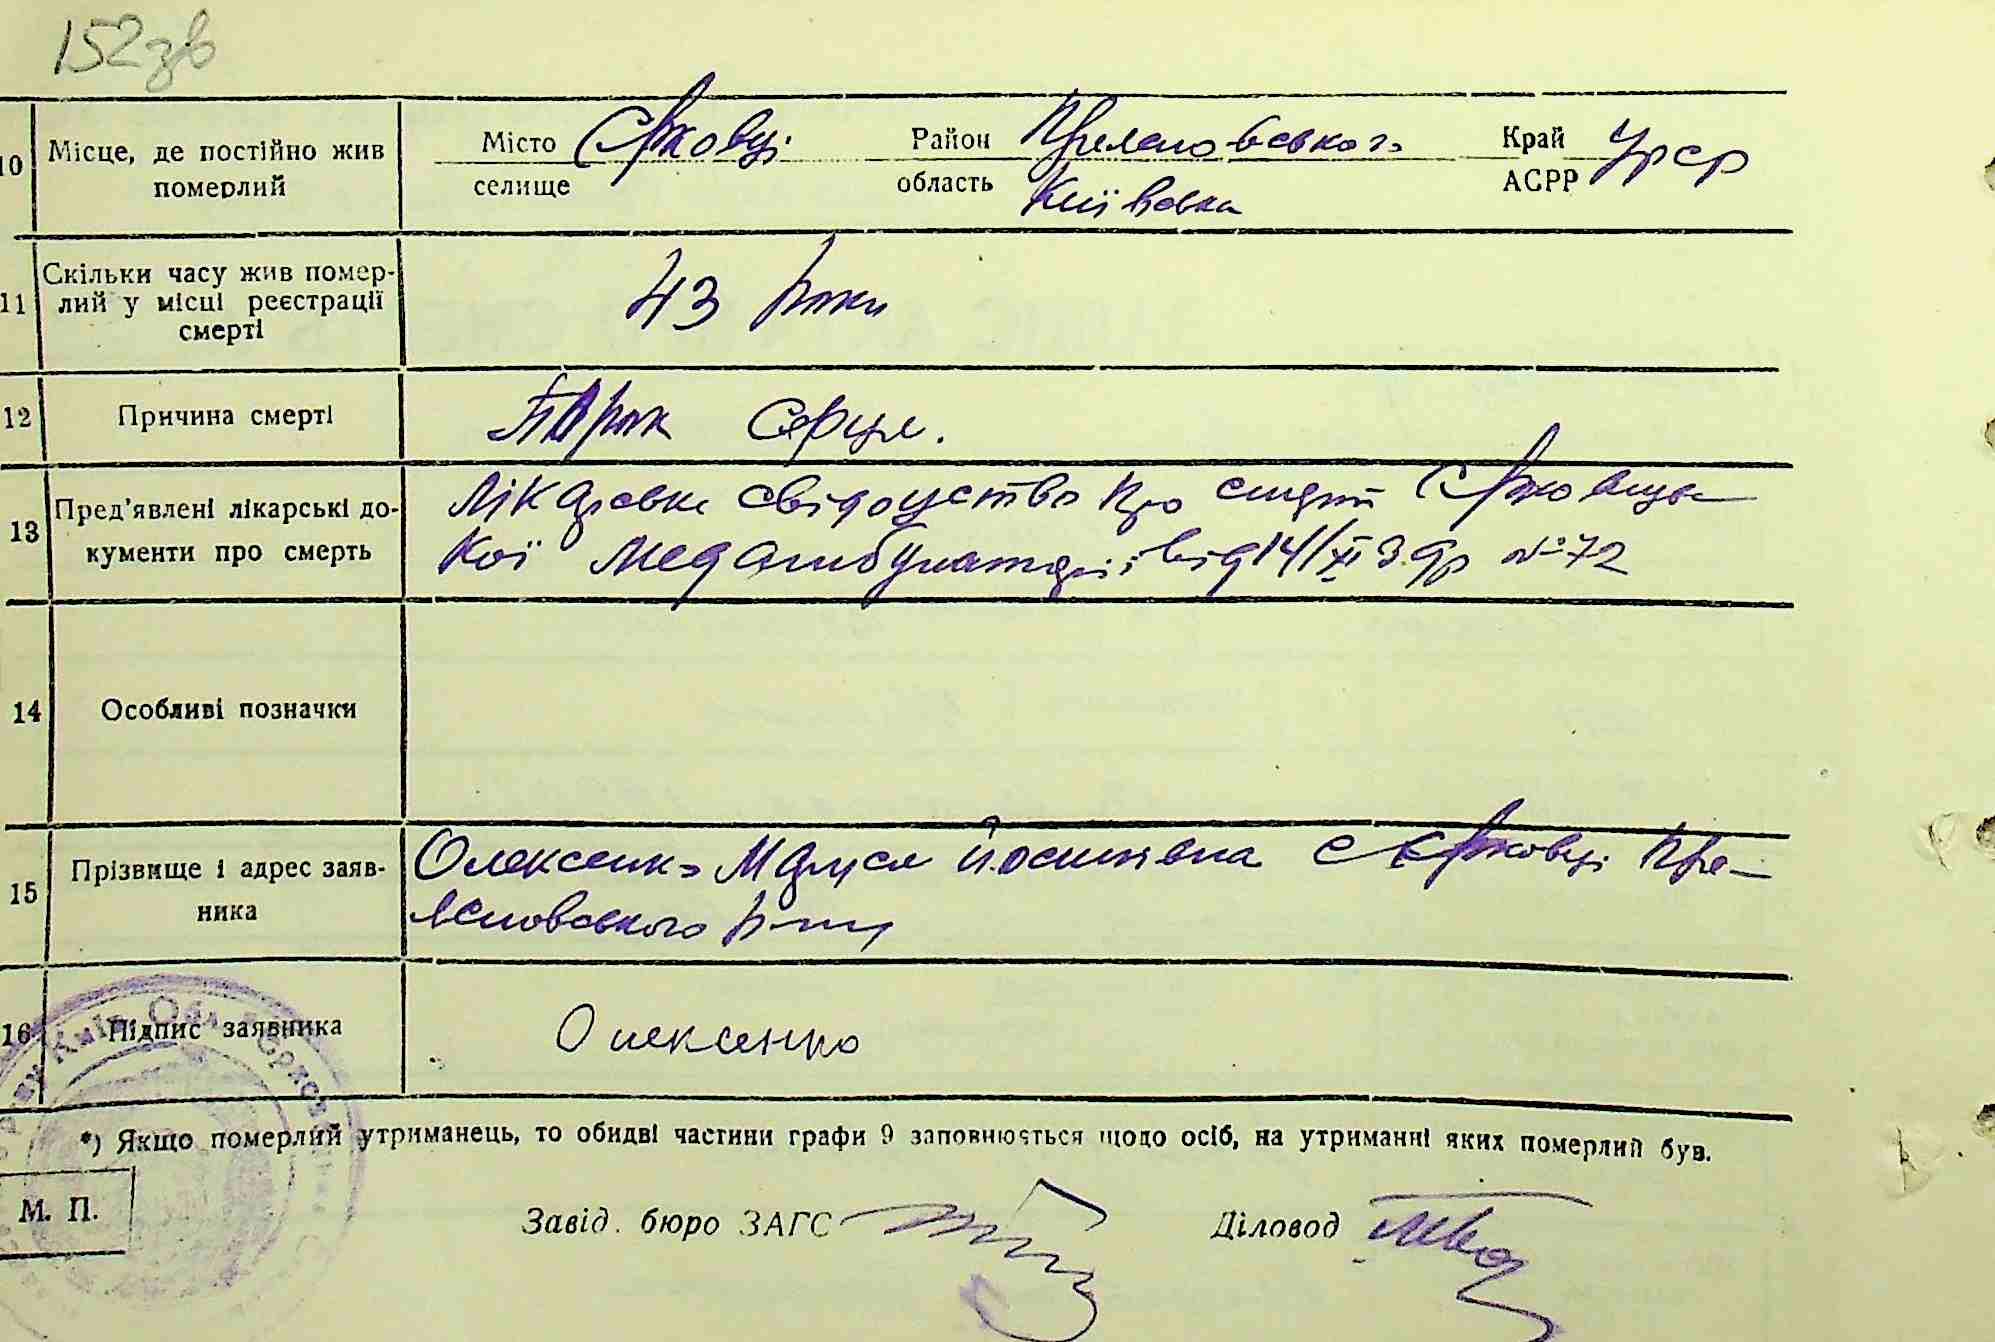 152зв
10 Місце, де постійно жив померлий
Місто селище Єрковці Район Переяславського Край УРСР
область Київська АСРР
11 Скільки часу жив помер-
лий у місці реєстрації
смерті
43 роки
12 Причина смерті
Порок серця.
13 Пред’явлені лікарські до-
кументи про смерть
Лікарське свідоцтво про смерть Єрковець-
кої медамбулаторії від 14/XI 39р № 72
14 Особливі позначки
15 Прізвище і адрес заяв-
ника
Олексенко Маруся Йосипівна с Єрковці Пере-
яславського р-ну
16 Підпис заявника
Олексенко
*) Якщо померлий утриманець, то обидві частини графи 9 заповнюється щодо осіб, на утриманні яких померлий був.
М. П.
Завід. бюро ЗАГС
Діловод